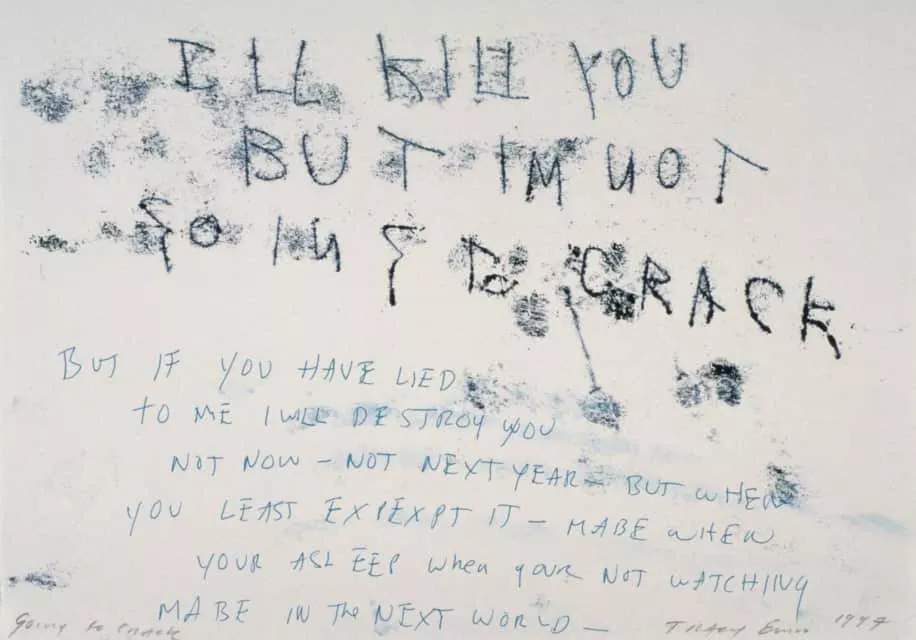 ILL KILL YOU
BUT IM NOT
GOING TO CRACK
BUT IF YOU HAVE LIED
TO ME I WILL DESTROY YOU
NOT NOW – NOT NEXT YEAR – BUT WHEN
YOU LEAST EXPEXPT IT – MABE WHEN
YOUR ASLEEP when your NOT WATCHING
MABE IN The NEXT WORLD –
Going to crack Tracey Emin 1997